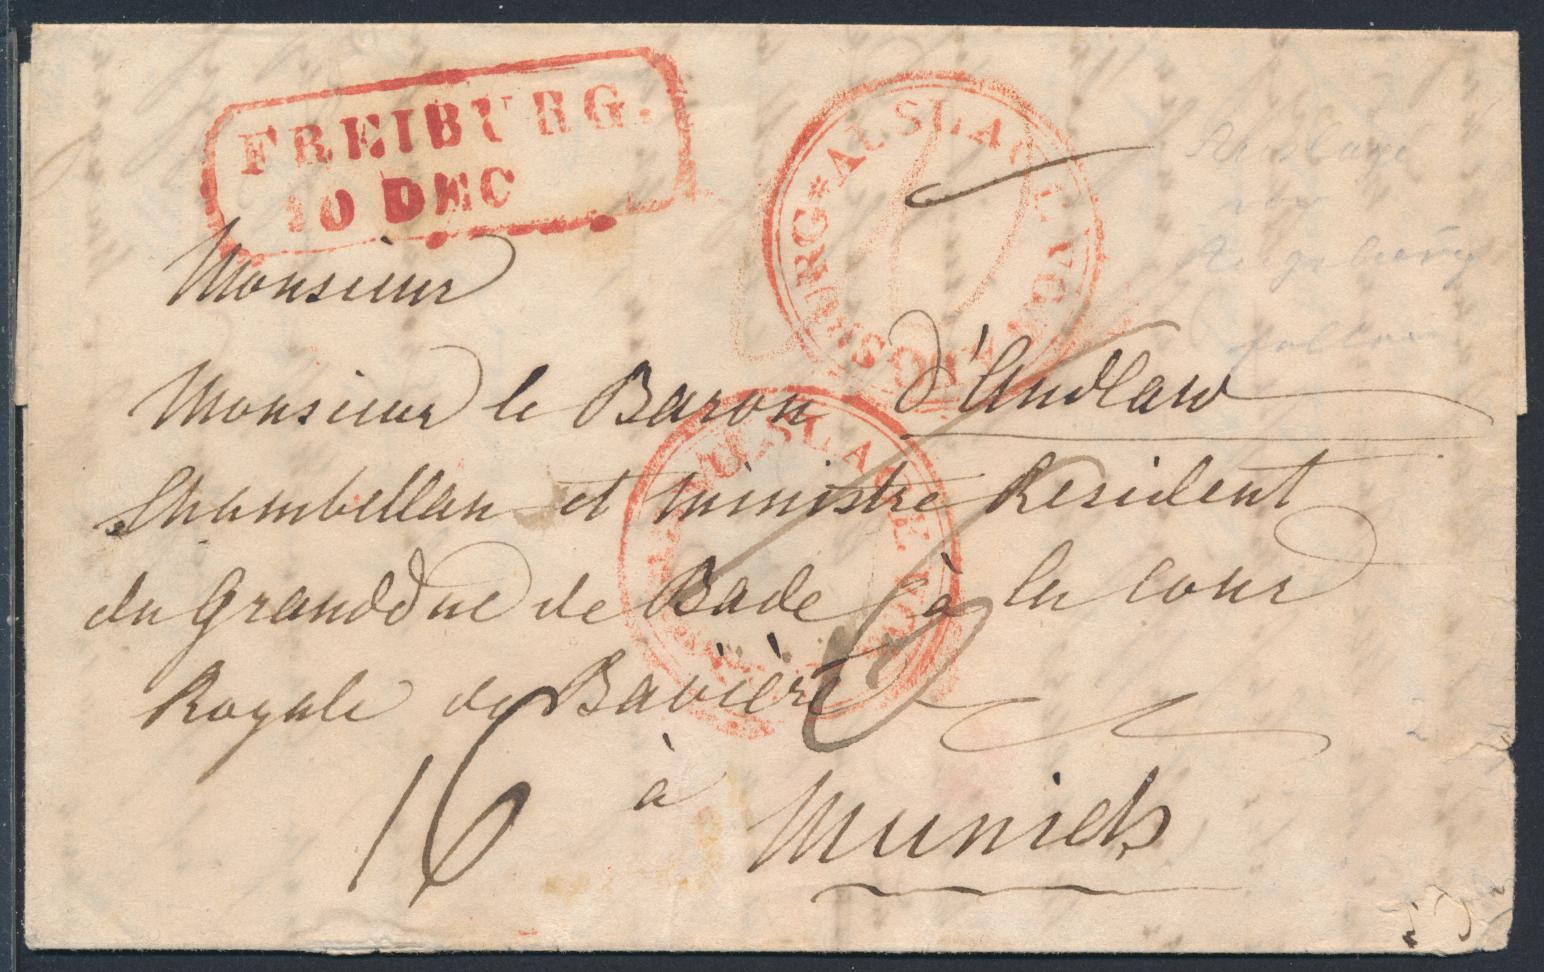 FREIBURG.
10 DEC
AUSLAGE V. AUGSBURG *
Monsieur
Monsieur le Baron d'Andlaw
Chambellan et ministre Resident
AUSLAGE
du GrandDuc de Bade à la cour
Royale de Bavière
16
à
Munich